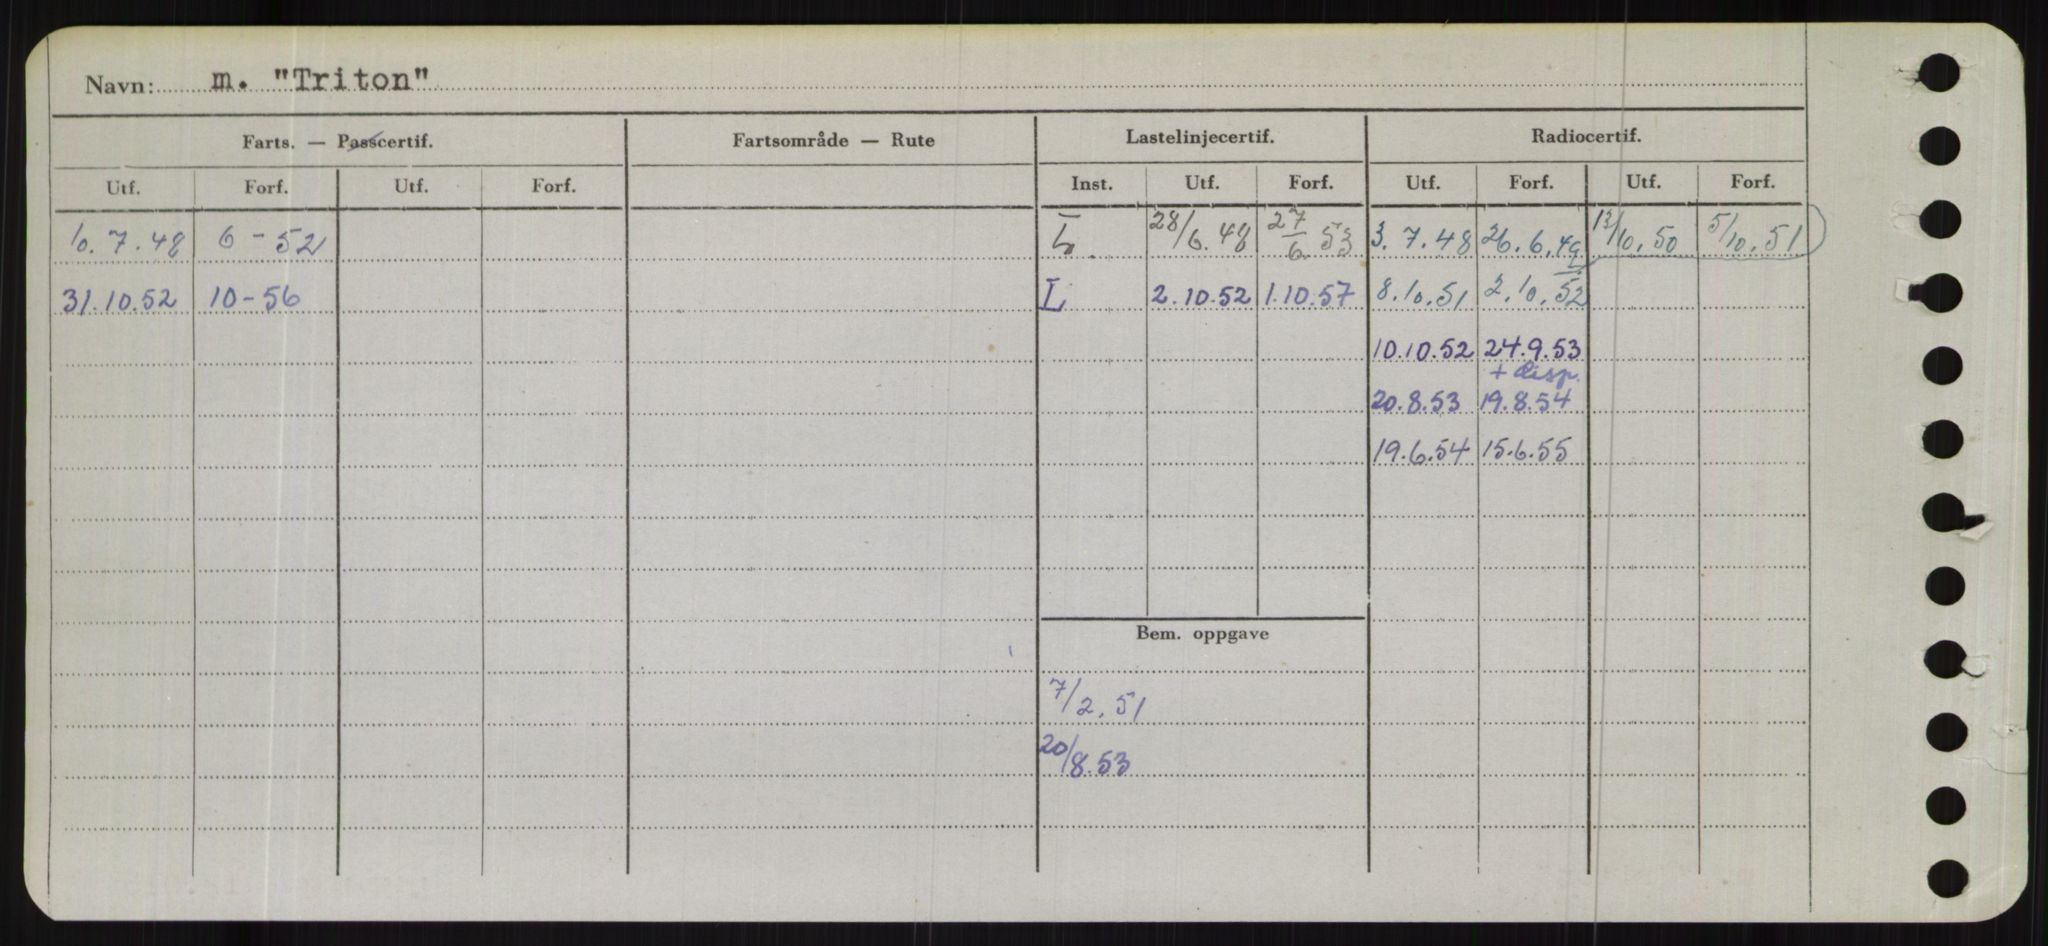 Navn: m. "Triton"
Farts. — Passcertif. Fartsområde — Rute Lastelinjecertif. Radiocertif.
Utf. Forf. Utf. Forf. Inst. Utf. Forf. Utf. Forf. Utf. Forf.
10.7.48 6-52 L 28/6.48 27/6 53 3.7.48 26.6.49 13/10.50 5/10.51
31.10.52 10-56 L 2.10.52 1.10.57 8.10.51 2.10.52
10.10.52 24.9.53
+ disp.
20.8.53 19.8.54
19.6.54 15.6.55
Bem. oppgave
7/2.51
20/8.53